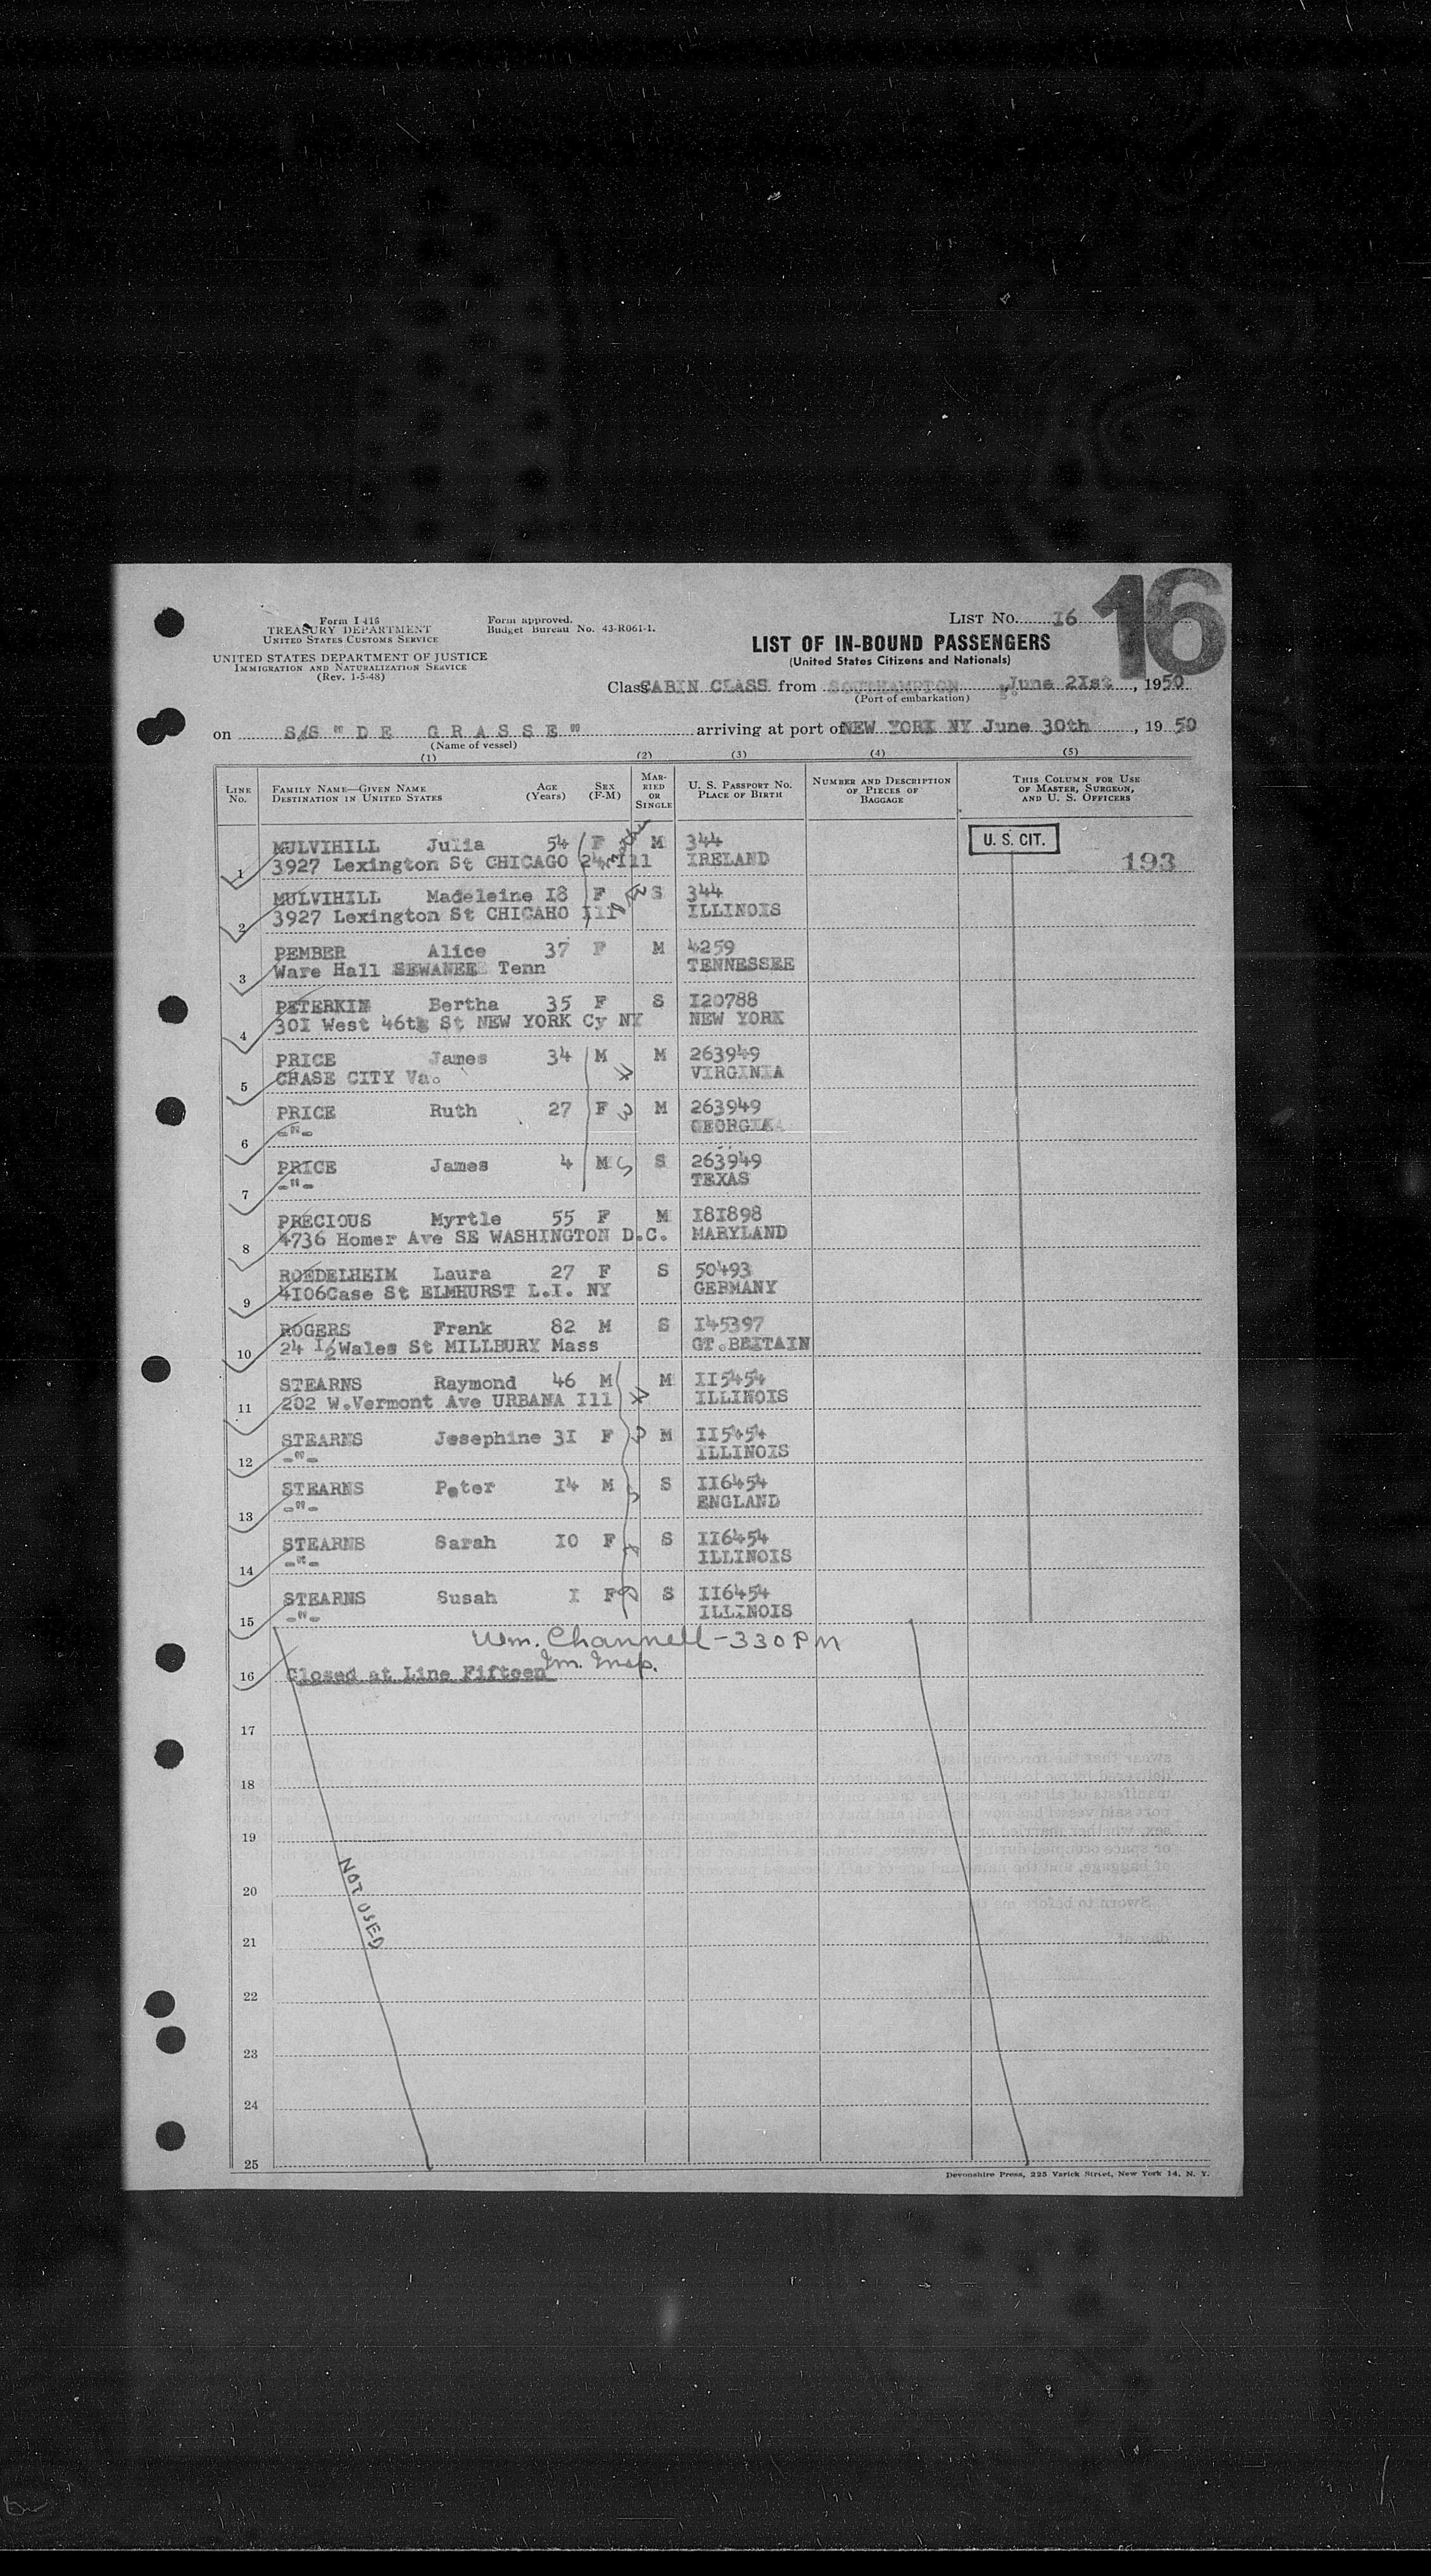 16
Form I-416
TREASURY DEPARTMENT
UNITED STATES CUSTOMS SERVICE
Form approved.
Budget Bureau No. 43-R061-1.
LIST NO. I6
UNITED STATES DEPARTMENT OF JUSTICE
IMMIGRATION AND NATURALIZATION SERVICE
(Rev. 1-5-48)
LIST OF IN-BOUND PASSENGERS
(United States Citizens and Nationals)
Class CABIN CLASS from SOUTHAMPTON, June 2Ist, 1950
(Port of embarkation)
on S/S "DE GRASSE" arriving at port of NEW YORK NY June 30th, 1950
(Name of vessel)
(1) (2) (3) (4) (5)
LINE NO. FAMILY NAME—GIVEN NAME DESTINATION IN UNITED STATES AGE (Years) SEX (F-M) MARRIED OR SINGLE U. S. PASSPORT NO. PLACE OF BIRTH NUMBER AND DESCRIPTION OF PIECES OF BAGGAGE THIS COLUMN FOR USE OF MASTER, SURGEON, AND U. S. OFFICERS
MULVIHILL Julia 54 F M 344 U. S. CIT.
1 3927 Lexington St CHICAGO 24 Ill IRELAND 193
MULVIHILL Madeleine I8 F S 344
2 3927 Lexington St CHICAHO Ill ILLINOIS
PEMBER Alice 37 F M 4259
3 Ware Hall SEWANEE Tenn TENNESSEE
PETERKIN Bertha 35 F S I20788
4 30I West 46th St NEW YORK Cy NY NEW YORK
PRICE James 34 M M 263949
5 CHASE CITY Va. VIRGINIA
PRICE Ruth 27 F M 263949
6 -"- GEORGIA
PRICE James 4 M S 263949
7 -"- TEXAS
PRECIOUS Myrtle 55 F M I8I898
8 4736 Homer Ave SE WASHINGTON D.C. MARYLAND
ROEDELHEIM Laura 27 F S 50493
9 4I06Case St ELMHURST L.I. NY GERMANY
ROGERS Frank 82 M S I45397
10 24 I/2Wales St MILLBURY Mass GT.BRITAIN
STEARNS Raymond 46 M M II5454
11 202 W.Vermont Ave URBANA Ill ILLINOIS
STEARNS Josephine 3I F M II5454
12 -"- ILLINOIS
STEARNS Peter I4 M S II6454
13 -"- ENGLAND
STEARNS Sarah I0 F S II6454
14 -"- ILLINOIS
STEARNS Susah I F S II6454
15 -"- ILLINOIS
Wm. Channell - 330 PM
Im. Insp.
16 Closed at Line Fifteen
17
18
19
20
NOT USED
21
22
23
24
25
Devonshire Press, 225 Varick Street, New York 14, N. Y.